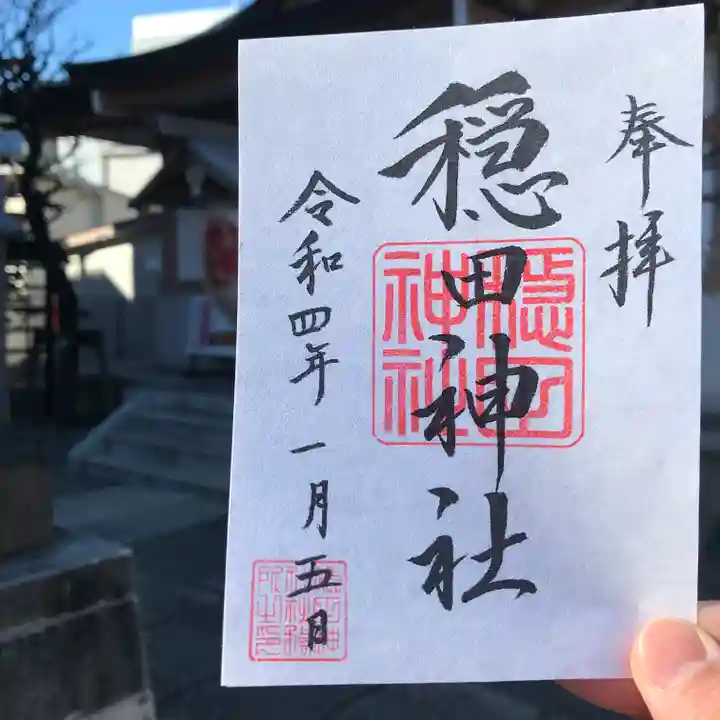 奉拝
穏田神社
穏田神社
令和四年一月五日